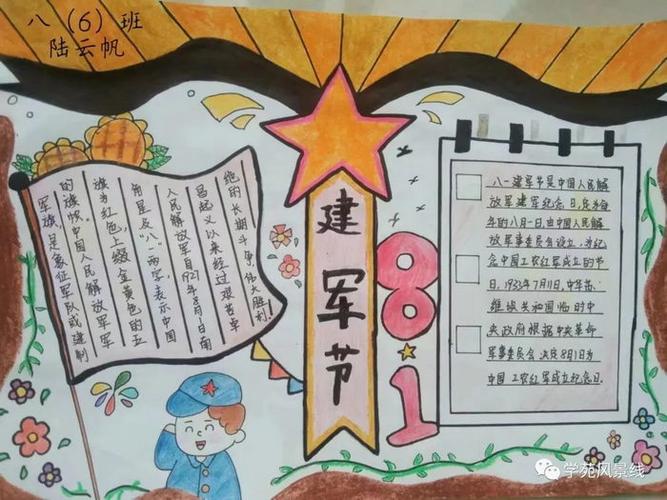 八（6）班
陆云帆
军旗,是象征军队或建制
的旗帜.中国人民解放军军
旗为红色,上缀金黄色的五
角星及“八一”两字,表示中国
人民解放军自1927年8月1日南
昌起义以来经过艰苦卓
绝的长期斗争,伟大胜利!
建军节
8.1
八一建军节是中国人民解
放军建军纪念日,定为每
年的八月一日,由中国人民解
放军事委员会设立,为纪
念中国工农红军成立的节
日.1933年7月11日,中华苏
维埃共和国临的中
央政府根据中央革命
军事委员会 决定8月1日为
中国工农红军成立纪念日.
学苑风景线